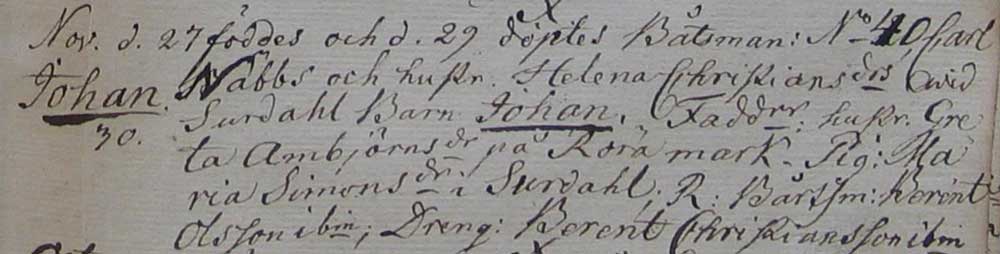 Nov. d. 27 föddes och d. 29 döptes Båtsman: No 40 Carl
Johan. Näbbs och hustr. Helena Christians drs wid
30. Surdahl Barn Johan. Faddrr: hustr. Gre
ta Ambjörns dr på Röra mark. Pig: Ma
ria Simons dr i Surdahl; R: Båtsm: Berent
Olsson ibm; Dreng: Berent Christiansson ibm